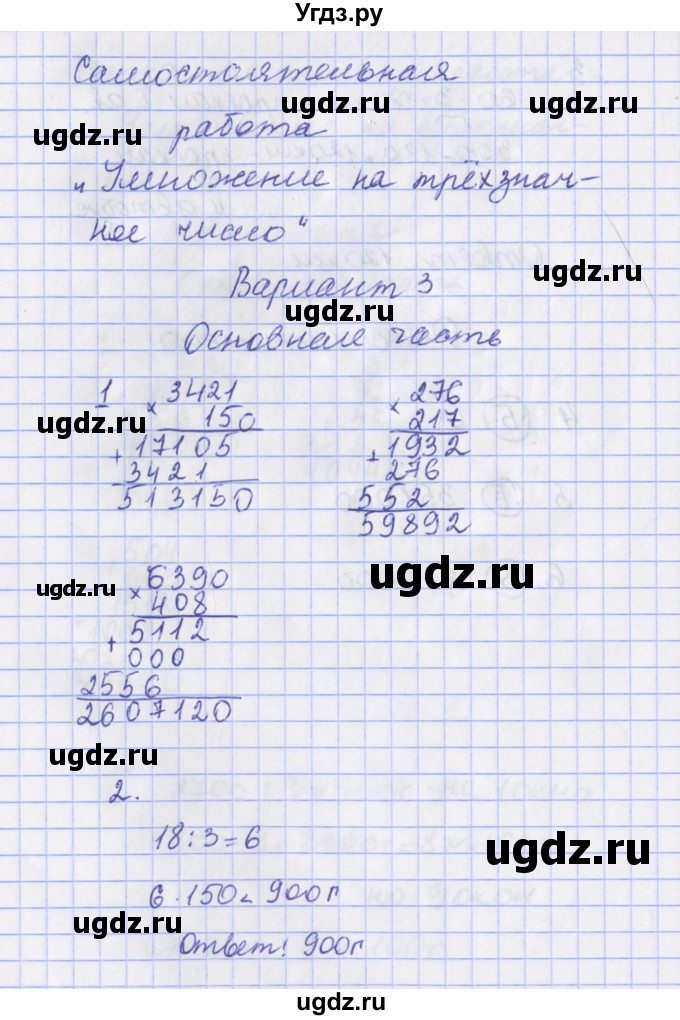 Угдз.ру
Самостоятельная
работа
„Умножение на трёхзнач-
ное число“
Вариант 3
Основная часть
1
× 3421
150
+ 17105
3421
513150
× 276
217
+ 1932
276
552
59892
× 6390
408
+ 5112
000
2556
2607120
2.
18:3=6
6·150=900г
Ответ: 900г
ugdz.ru
ugdz.ru
ugdz.ru
ugdz.ru
ugdz.ru
ugdz.ru
ugdz.ru
ugdz.ru
ugdz.ru
ugdz.ru
ugdz.ru
ugdz.ru